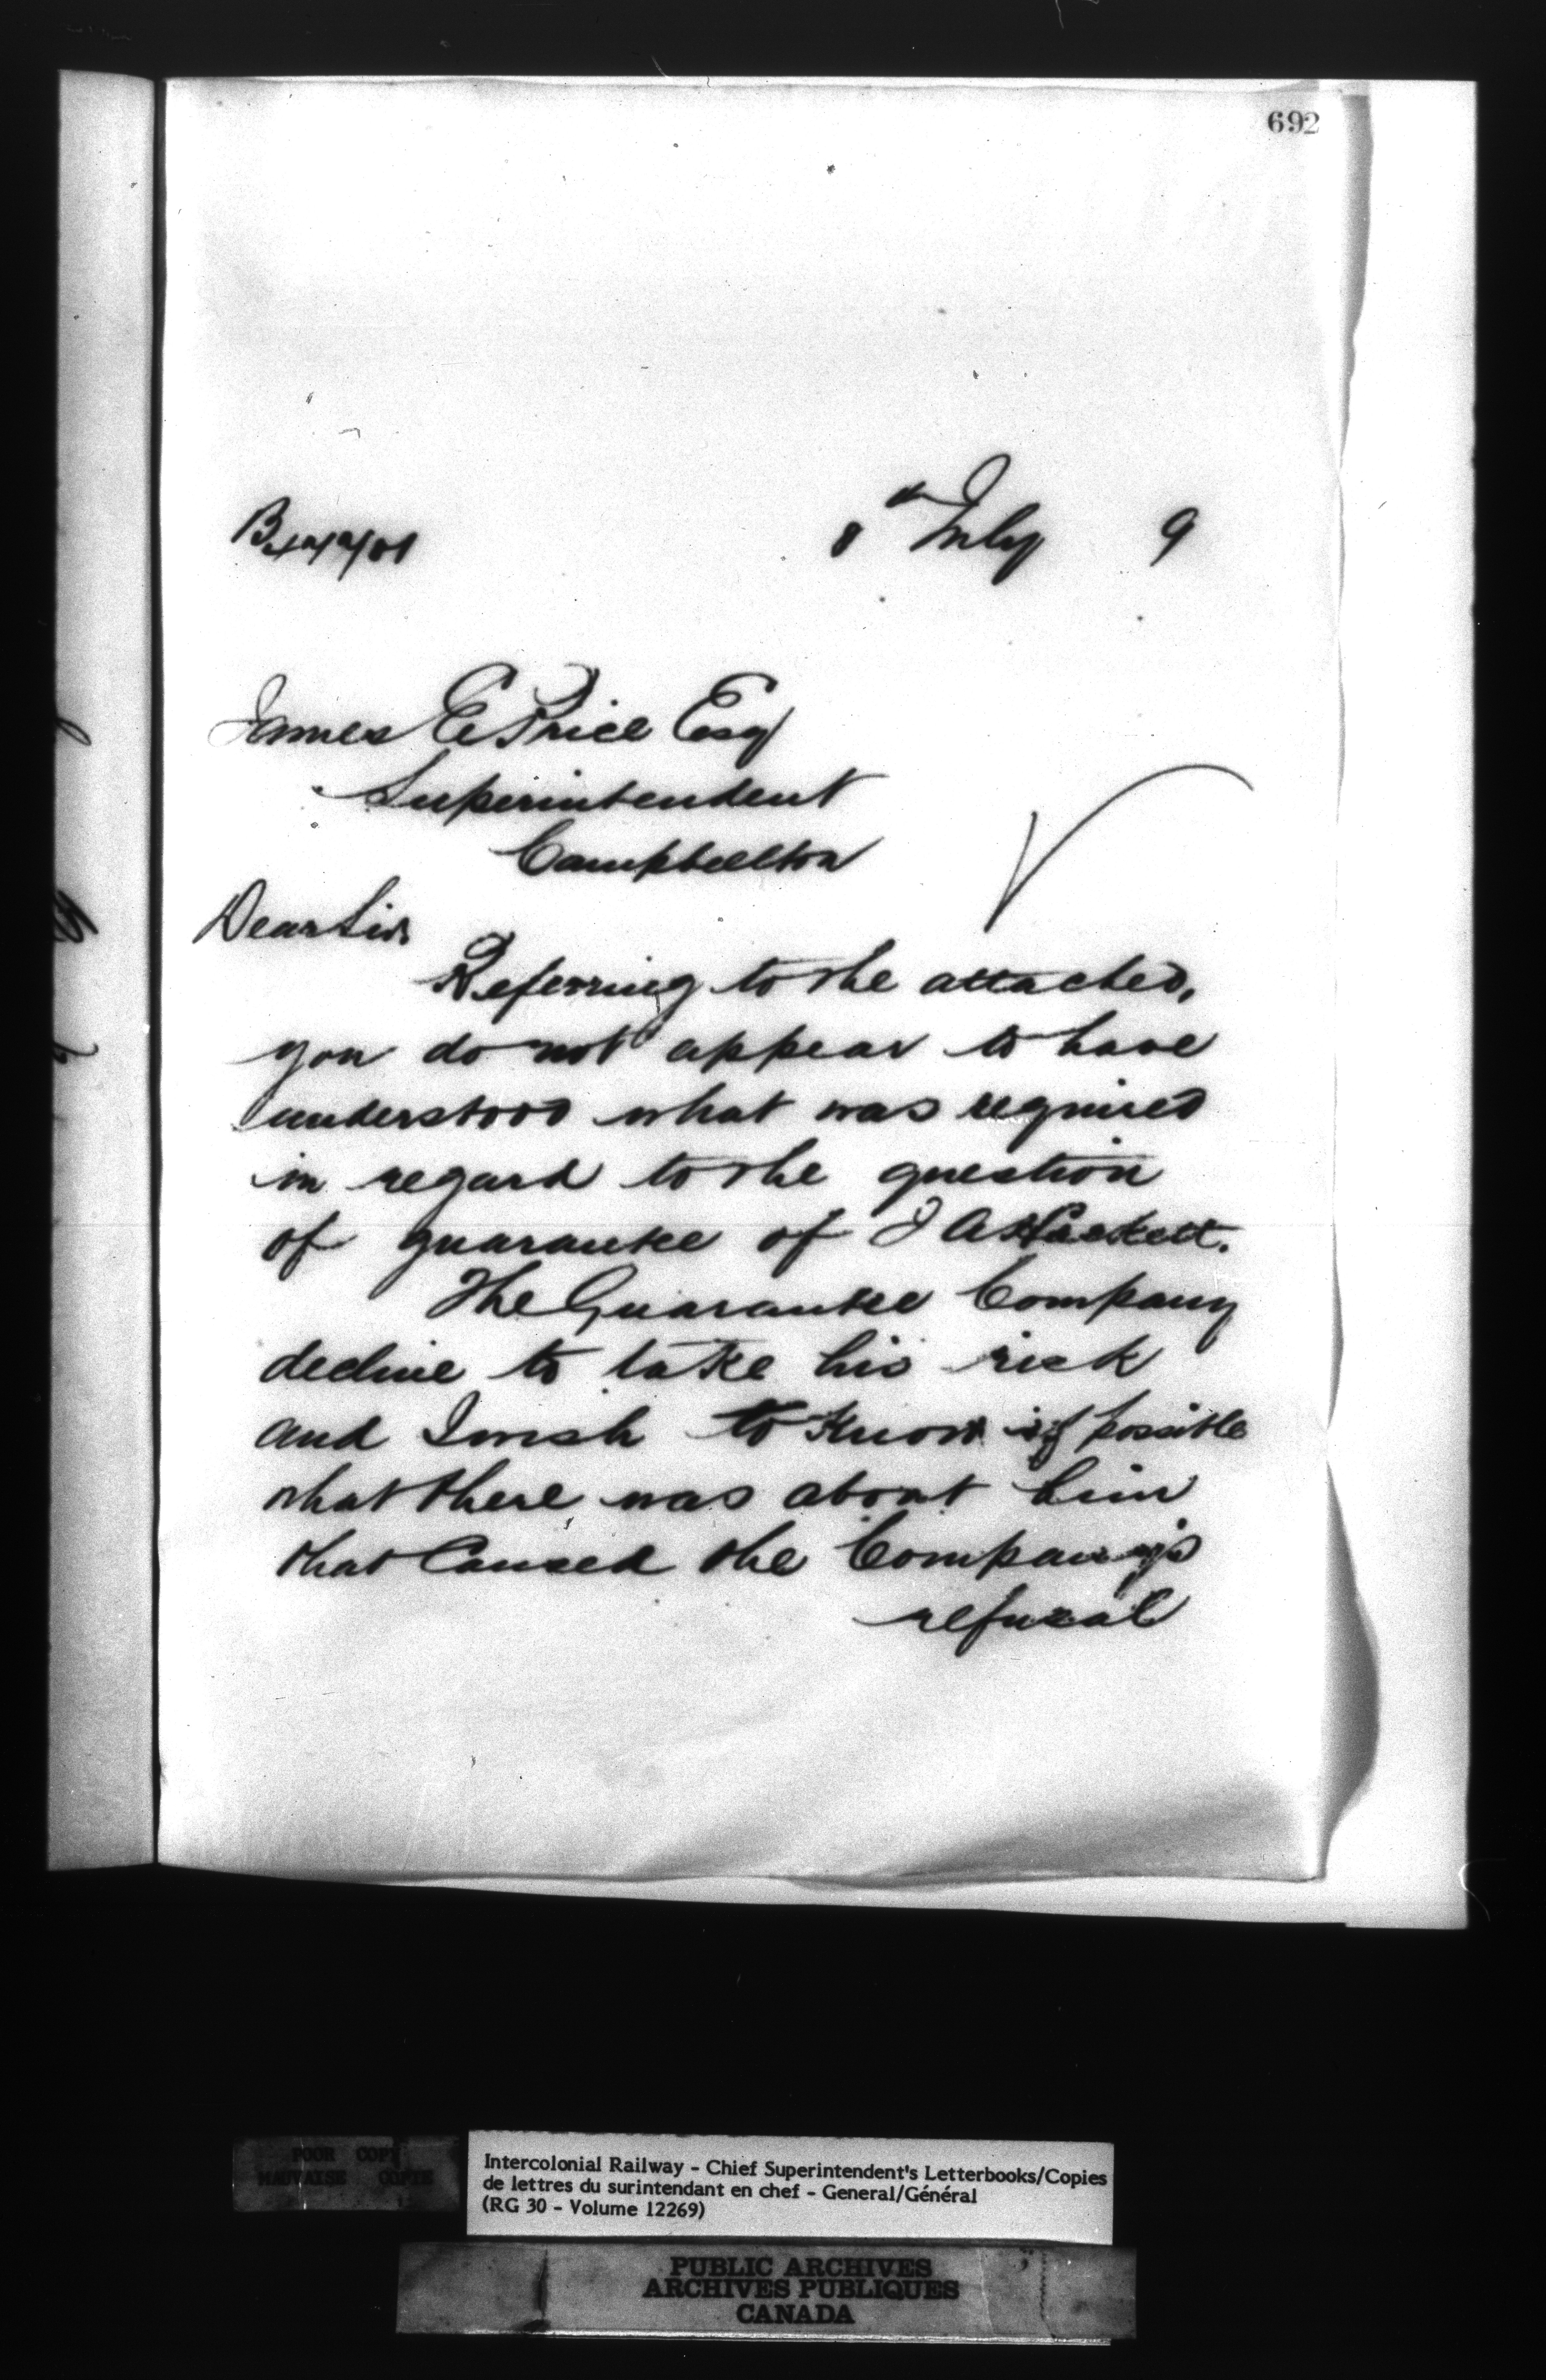 692
8th July 9
James E Price Esq
Superintendent
Campbellton
Dear Sir
Referring to the attached,
you do not appear to have
understood what was required
in regard to the question
of guarantee of J A
The Guarantee Company
decline to take his risk
and I wish to know if possible
what there was about him
that Caused the Company's
refusal
POOR COPY
MAUVAISE COPIE
Intercolonial Railway - Chief Superintendent's Letterbooks/Copies
de lettres du surintendant en chef - General/Général
(RG 30 - Volume 12269)
PUBLIC ARCHIVES
ARCHIVES PUBLIQUES
CANADA